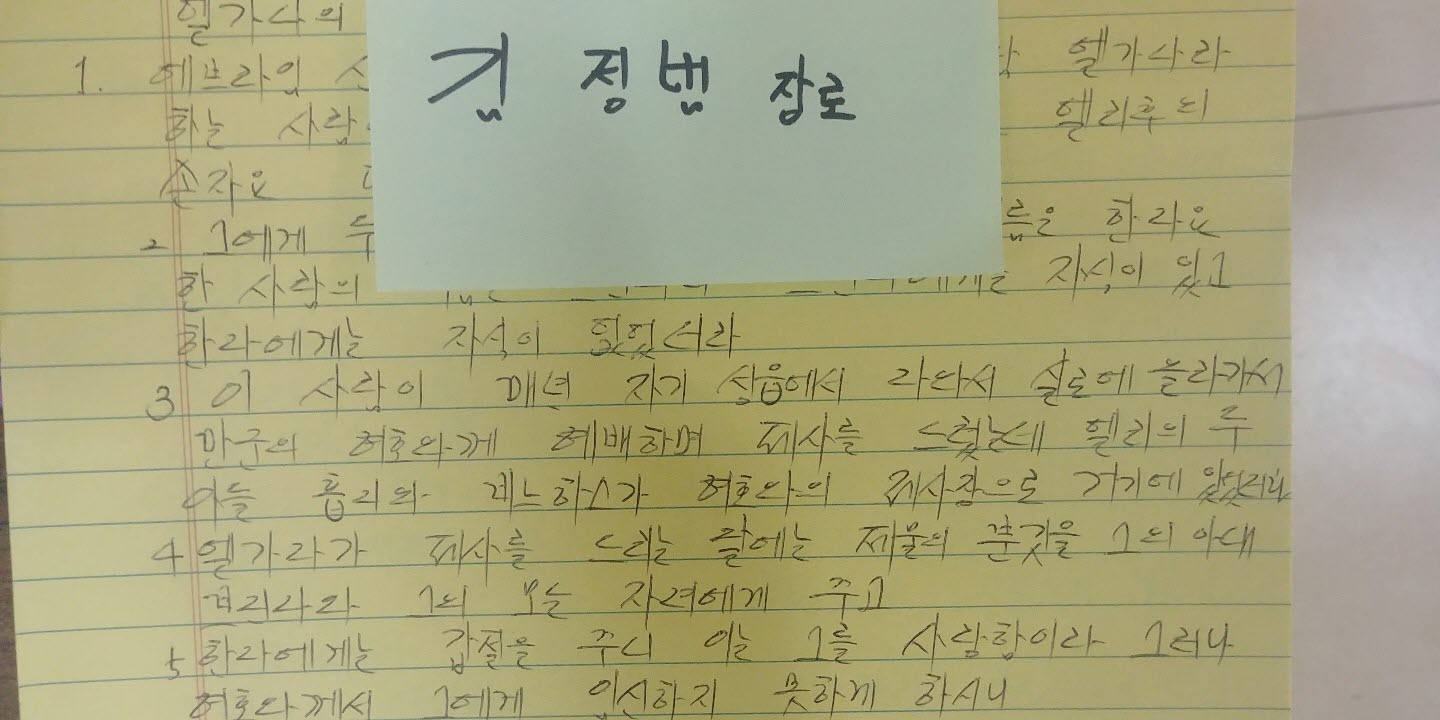 엘가나의
김 정냄 장로
1. 에브라임 엘가나라
하는 사람 엘리후의
손자요
2 그에게 두 름은 한나요
한 사람의 자식이 있고
한나에게는 자식이 없었더라
3 이 사람이 매년 자기 성읍에서 나와서 실로에 올라가서
만군의 여호와께 예배하며 제사를 드렸는데 엘리의 두
아들 홉니와 비느하스가 여호와의 제사장으로 거기에 있었더라
4 엘가나가 제사를 드리는 날에는 제물의 분깃을 그의 아내
브닌나와 그의 모든 자녀에게 주고
5 한나에게는 갑절을 주니 이는 그를 사랑함이라 그러나
여호와께서 그에게 임신하지 못하게 하시니